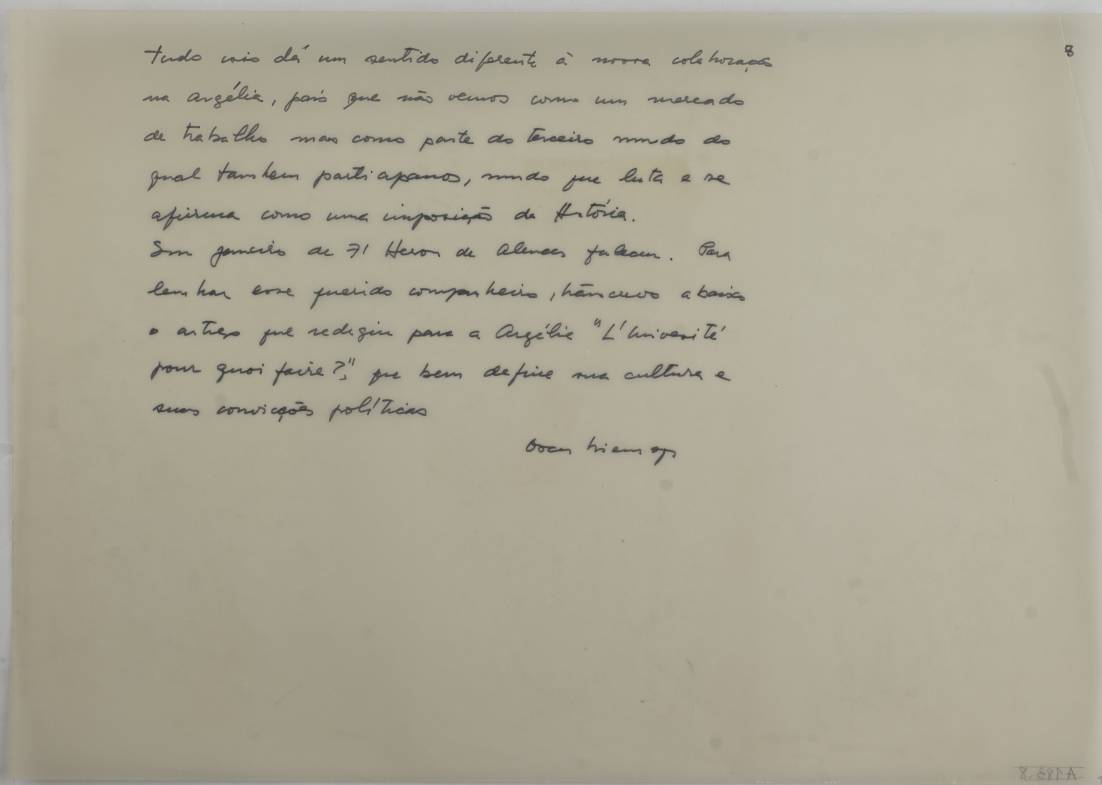 8
tudo isso dá um sentido diferente à nossa colaboração
na Argélia, país que não vemos como um mercado
de trabalho mas como parte do terceiro mundo do
qual tambem participamos, mundo que luta e se
afirma como uma imposição da História.
Em janeiro de 71 Heron de Alencar faleceu. Para
lembrar esse querido companheiro, transcrevo abaixo
o artigo que redigiu para a Argélia "L'Université
pour quoi faire?", que bem define sua cultura e
suas convicções políticas
Oscar Niemeyer